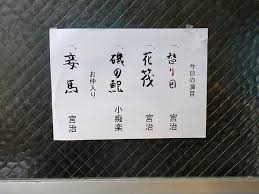 今日の演目
一、替り目 宮治
一、花筏 宮治
一、磯の鮑 小痴楽
お仲入り
一、妾馬 宮治